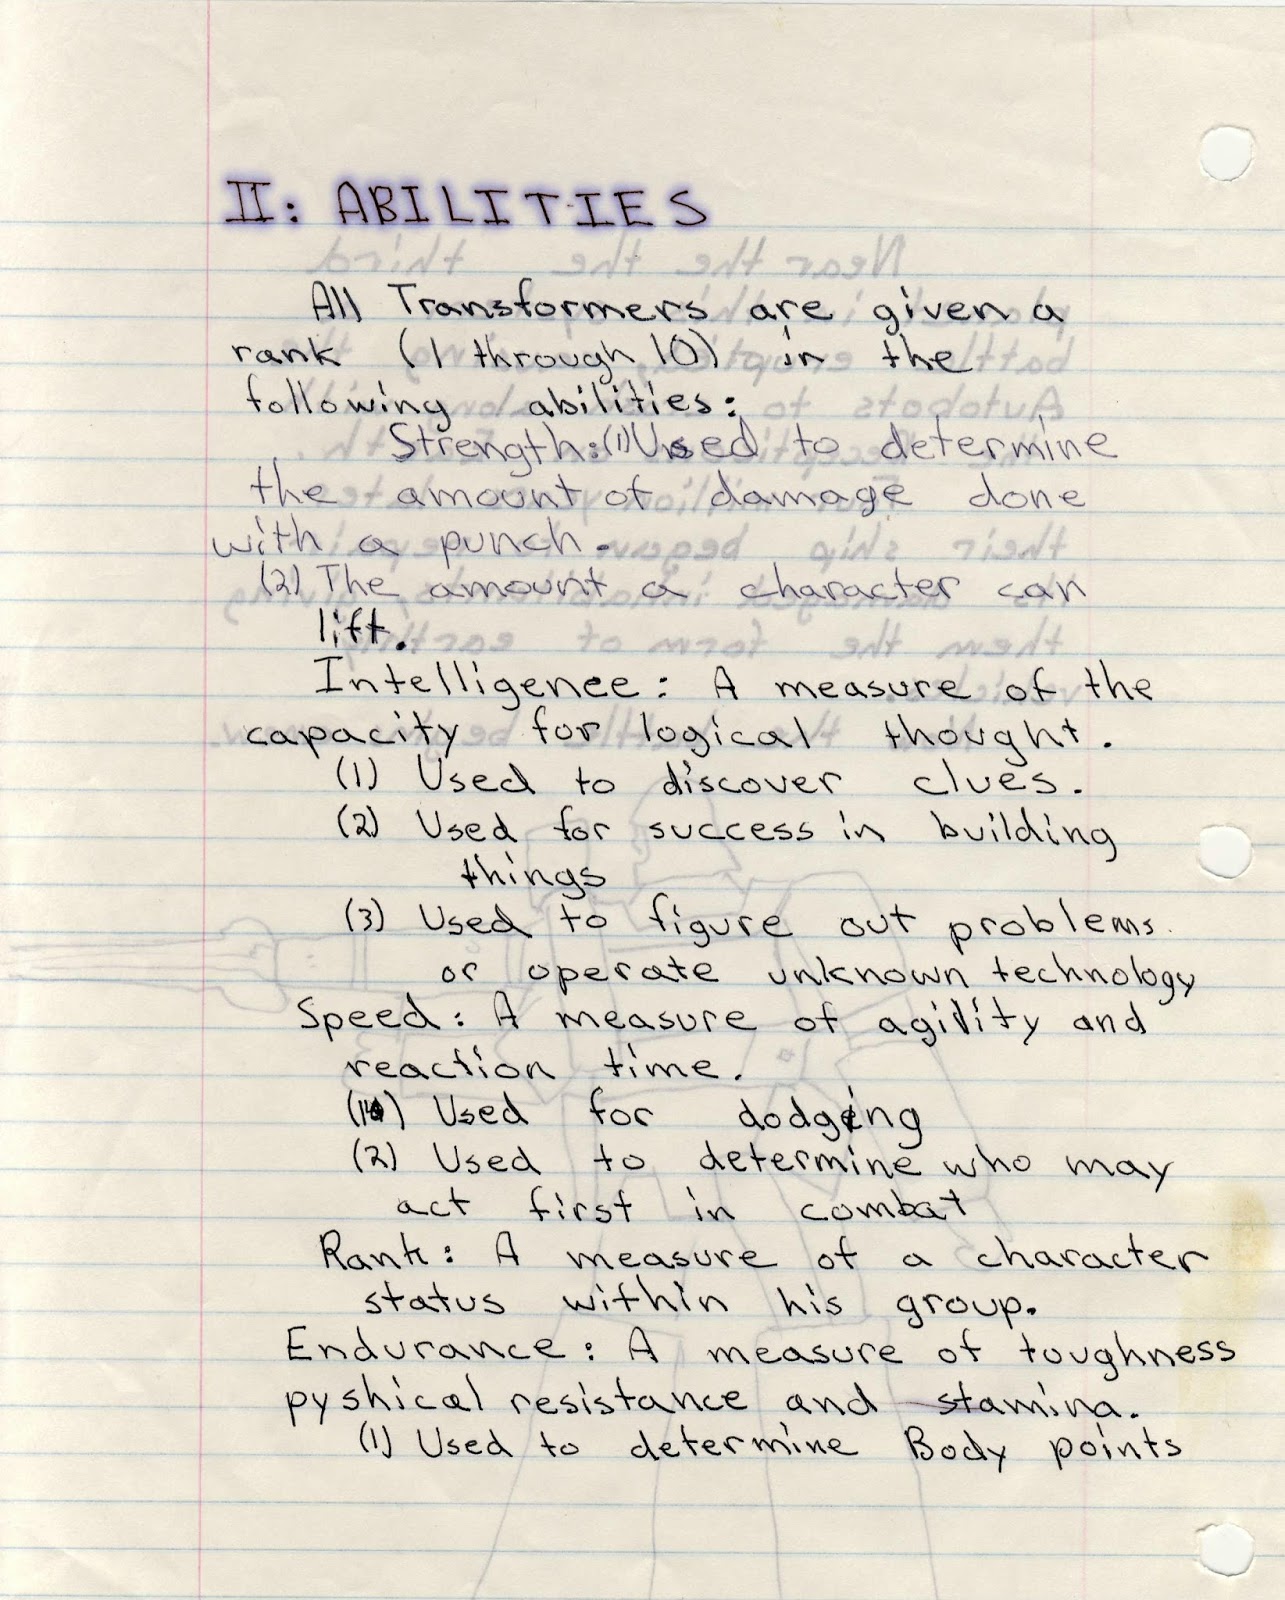 II: ABILITIES
All Transformers are given a
rank (1 through 10) in the
following abilities:
Strength: (1) Used to determine
the amount of damage done
with a punch.
(2) The amount a character can
lift.
Intelligence: A measure of the
capacity for logical thought.
(1) Used to discover clues.
(2) Used for success in building
things
(3) Used to figure out problems
or operate unknown technology
Speed: A measure of agility and
reaction time.
(1) Used for dodging
(2) Used to determine who may
act first in combat
Rank: A measure of a character
status within his group.
Endurance: A measure of toughness
pyshical resistance and stamina.
(1) Used to determine Body points